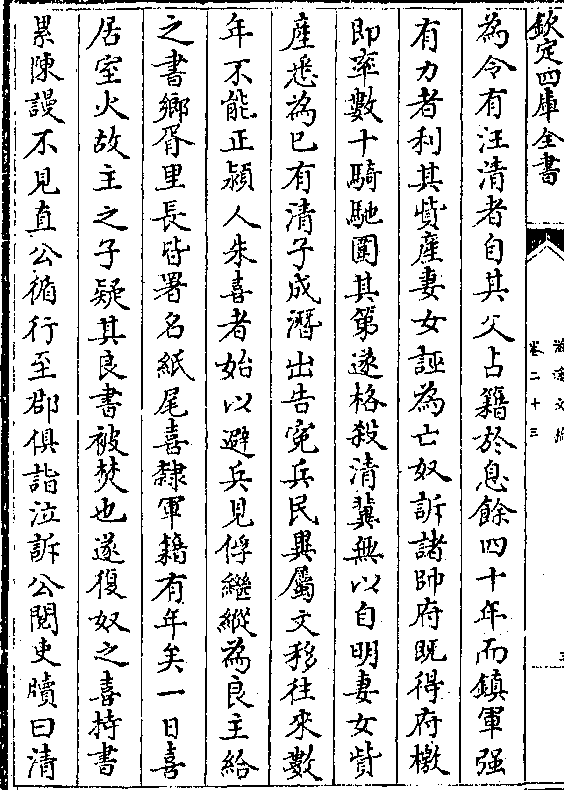 欽定四庫全書
卷二十三
為令有汪清者自其父占籍於息餘四十年而鎮軍强
有力者利其貲產妻女誣為亡奴訴諸帥府既得府檄
即率數十騎馳圍其第遂格殺清冀無以自明妻女貲
產悉為已有清子成潛出告寃兵民異屬文移往來數
年不能正潁人朱喜者始以避兵見俘繼縱為良主給
之書鄉胥里長皆署名紙尾喜隸軍籍有年矣一日喜
居室火故主之子疑其良書被焚也遂復奴之喜持書
累陳謾不見直公循行至郡俱詣泣訴公閱吏牘曰清